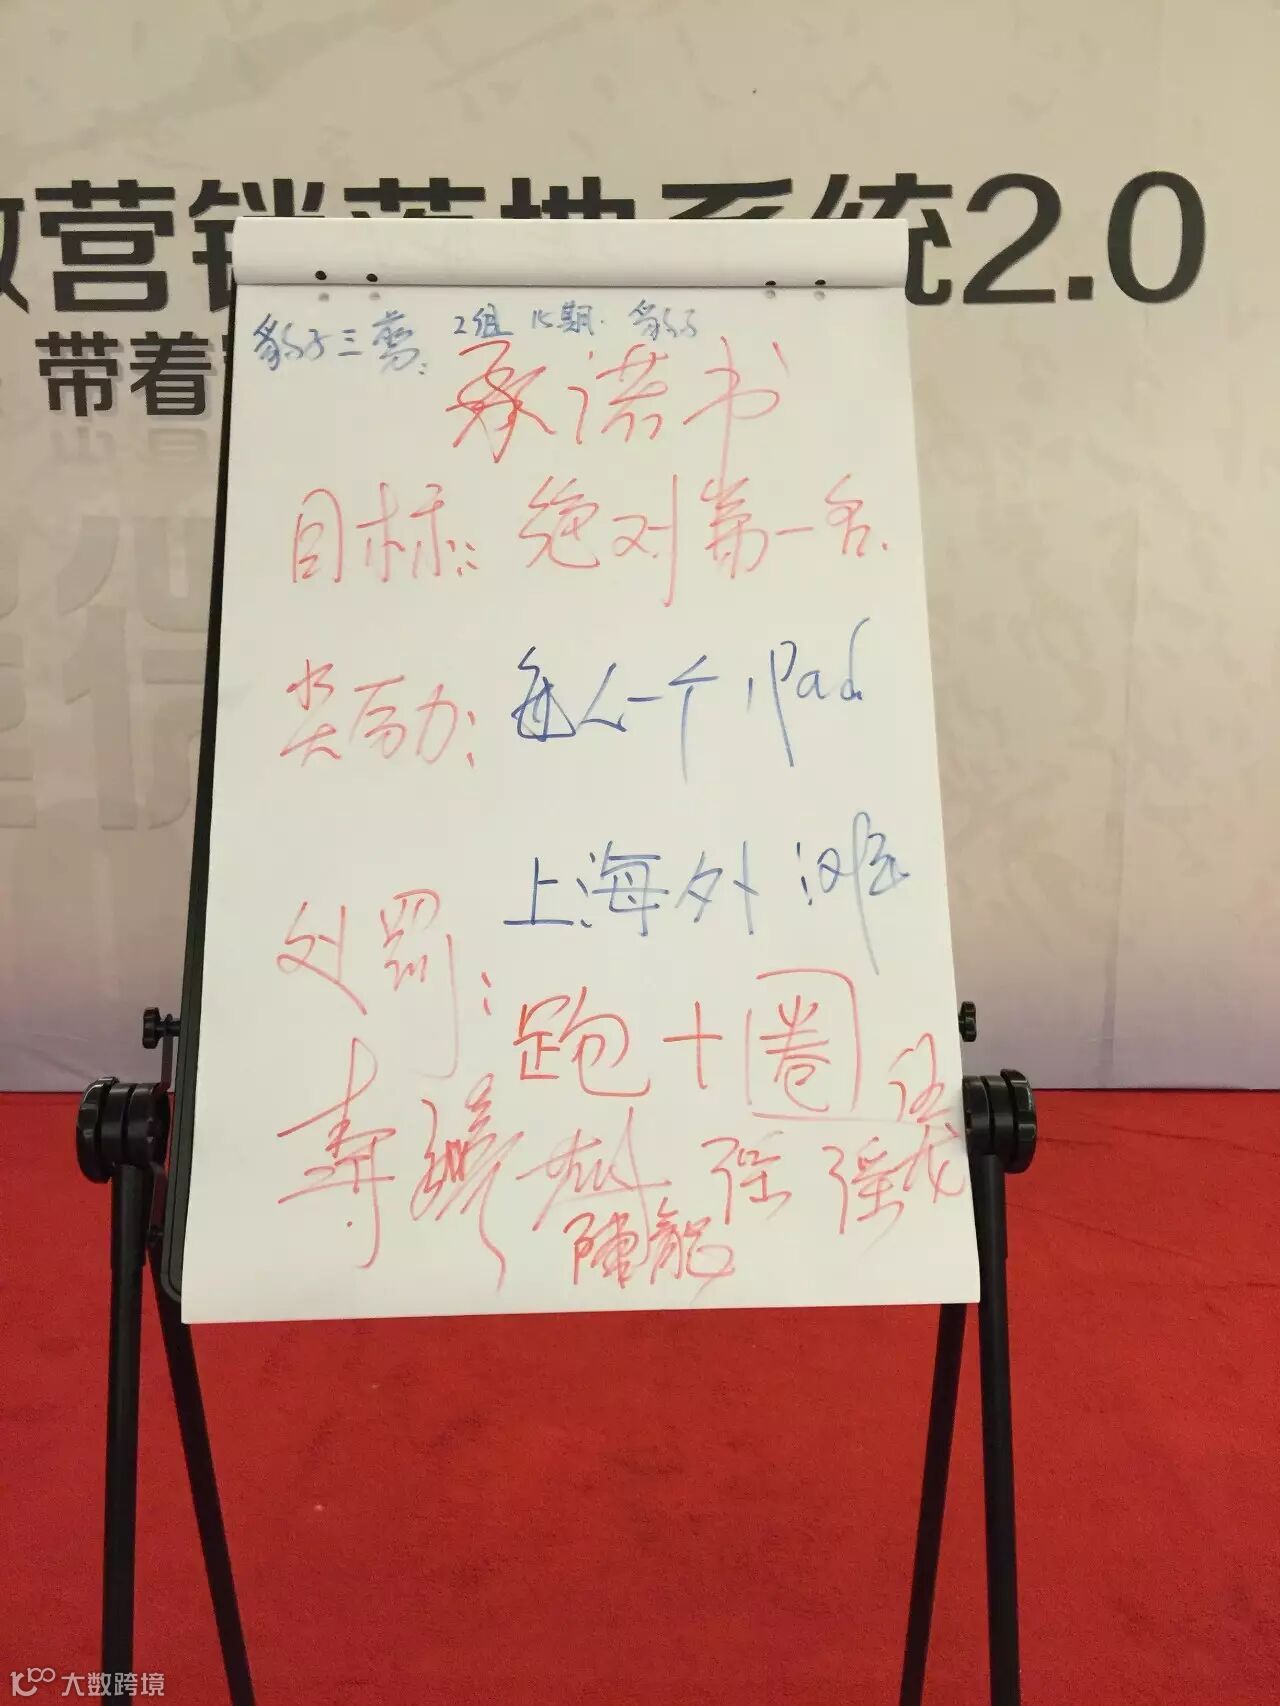 营销落地系统2.0
带着
豹子三剪: 2组 15期. 豹子
承诺书
目标: 绝对第一名.
奖励: 每人一个iPad
上海外滩
处罚: 跑十圈
陳龍
大数跨境